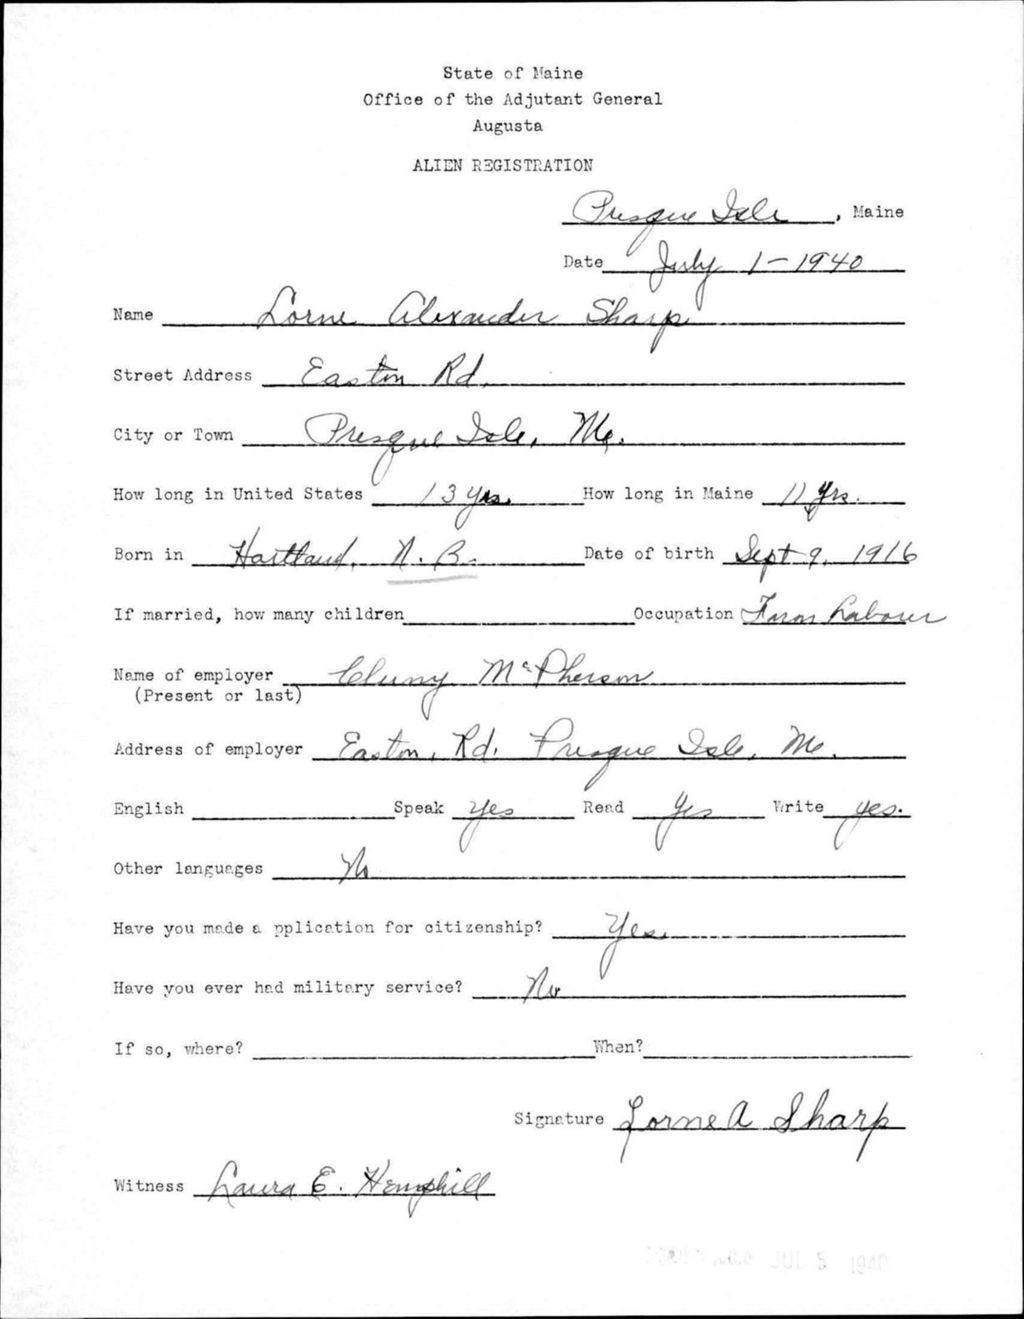 State of Maine
Office of the Adjutant General
Augusta
ALIEN REGISTRATION
Presque Isle, Maine
Date July 1-1940
Name Lorne Alexander Sharp
Street Address Easton Rd.
City or Town Presque Isle, Me.
How long in United States 13 yrs. How long in Maine 11 yrs.
Born in Hartland, N.B. Date of birth Sept 9, 1916
If married, how many children Occupation Farm Laborer
Name of employer Cluny McPherson
(Present or last)
Address of employer Easton, Rd. Presque Isle, Me.
English Speak yes Read yes Write yes.
Other languages No
Have you made a pplication for citizenship? Yes.
Have you ever had military service? No
If so, where? When?
Signature Lorne A Sharp
Witness Laura E. Hemphill
JUL 5 1940